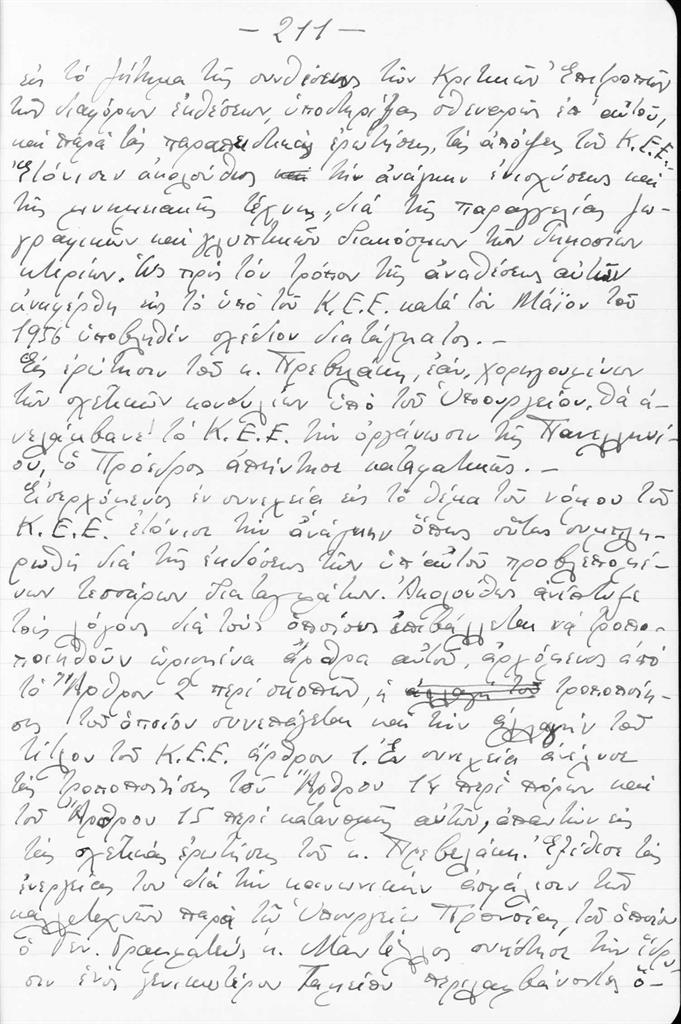 — 211 —
εἰς τὸ ζήτημα τῆς συνθέσεως τῶν Κριτικῶν Ἐπιτροπῶν
τῶν διαφόρων ἐκθέσεων, ὑποστηρίξας σθεναρῶς ἐπ' αὐτοῦ,
καὶ παρὰ τὰς παρατηρητικὰς ἐρωτήσεις, τὰς ἀπόψεις τοῦ Κ.Ε.Ε.-
Ἐτόνισεν ἀκολούθως τὴν ἀνάγκην ἐνισχύσεως καὶ
τῆς μνημειακῆς τέχνης, διὰ τῆς παραγγελίας ζω-
γραφικῶν καὶ γλυπτικῶν διακόσμων τῶν δημοσίων
κτιρίων. Ὡς πρὸς τὸν τρόπον τῆς ἀναθέσεως αὐτῶν
ἀνεφέρθη εἰς τὸ ὑπὸ τοῦ Κ.Ε.Ε. κατὰ τὸν Μάϊον τοῦ
1956 ὑποβληθὲν σχέδιον διατάγματος. —
Εἰς ἐρώτησιν τοῦ κ. Πρεβελάκη, ἐὰν, χορηγουμένων
τῶν σχετικῶν κονδυλίων ὑπὸ τοῦ Ὑπουργείου, θὰ ἀ-
νελάμβανε τὸ Κ.Ε.Ε. τὴν ὀργάνωσιν τῆς Πανελληνί-
ου, ὁ Πρόεδρος ἀπήντησε καταφατικῶς. —
Εἰσερχόμενος ἐν συνεχείᾳ εἰς τὸ θέμα τοῦ νόμου τοῦ
Κ.Ε.Ε. ἐτόνισε τὴν ἀνάγκην ὅπως οὗτος συμπλη-
ρωθῇ διὰ τῆς ἐκδόσεως τῶν ὑπ' αὐτοῦ προβλεπομέ-
νων τεσσάρων διαταγμάτων. Ἀκολούθως ἀνέπτυξε
τοὺς λόγους διὰ τοὺς ὁποίους ἐπιβάλλεται νὰ τροπο-
ποιηθοῦν ὡρισμένα ἄρθρα αὐτοῦ, ἀρχόμενος ἀπὸ
τὸ Ἄρθρον 2 περὶ σκοπῶν, ἡ ἀλλαγὴ τοῦ τροποποίη-
σις τοῦ ὁποίου συνεπάγεται καὶ τὴν ἀλλαγὴν τοῦ
τίτλου τοῦ Κ.Ε.Ε. ἄρθρον 1. Ἐν συνεχείᾳ ἀνέλυσε
τὰς τροποποιήσεις τοῦ Ἄρθρου 14 περὶ πόρων καὶ
τοῦ Ἄρθρου 15 περὶ κατανομῆς αὐτῶν, ἀπαντῶν εἰς
τὰς σχετικὰς ἐρωτήσεις τοῦ κ. Πρεβελάκη. Ἐξέθεσε τὰς
ἐνεργείας του διὰ τὴν κοινωνικὴν ἀσφάλισιν τῶν
καλλιτεχνῶν παρὰ τῷ Ὑπουργείῳ Προνοίας, τοῦ ὁποίου
ὁ Γεν. Γραμματεὺς κ. συνέστησε τὴν ἵδρυ-
σιν ἑνὸς γενικωτέρου Ταμείου περιλαμβάνοντος ὅ-